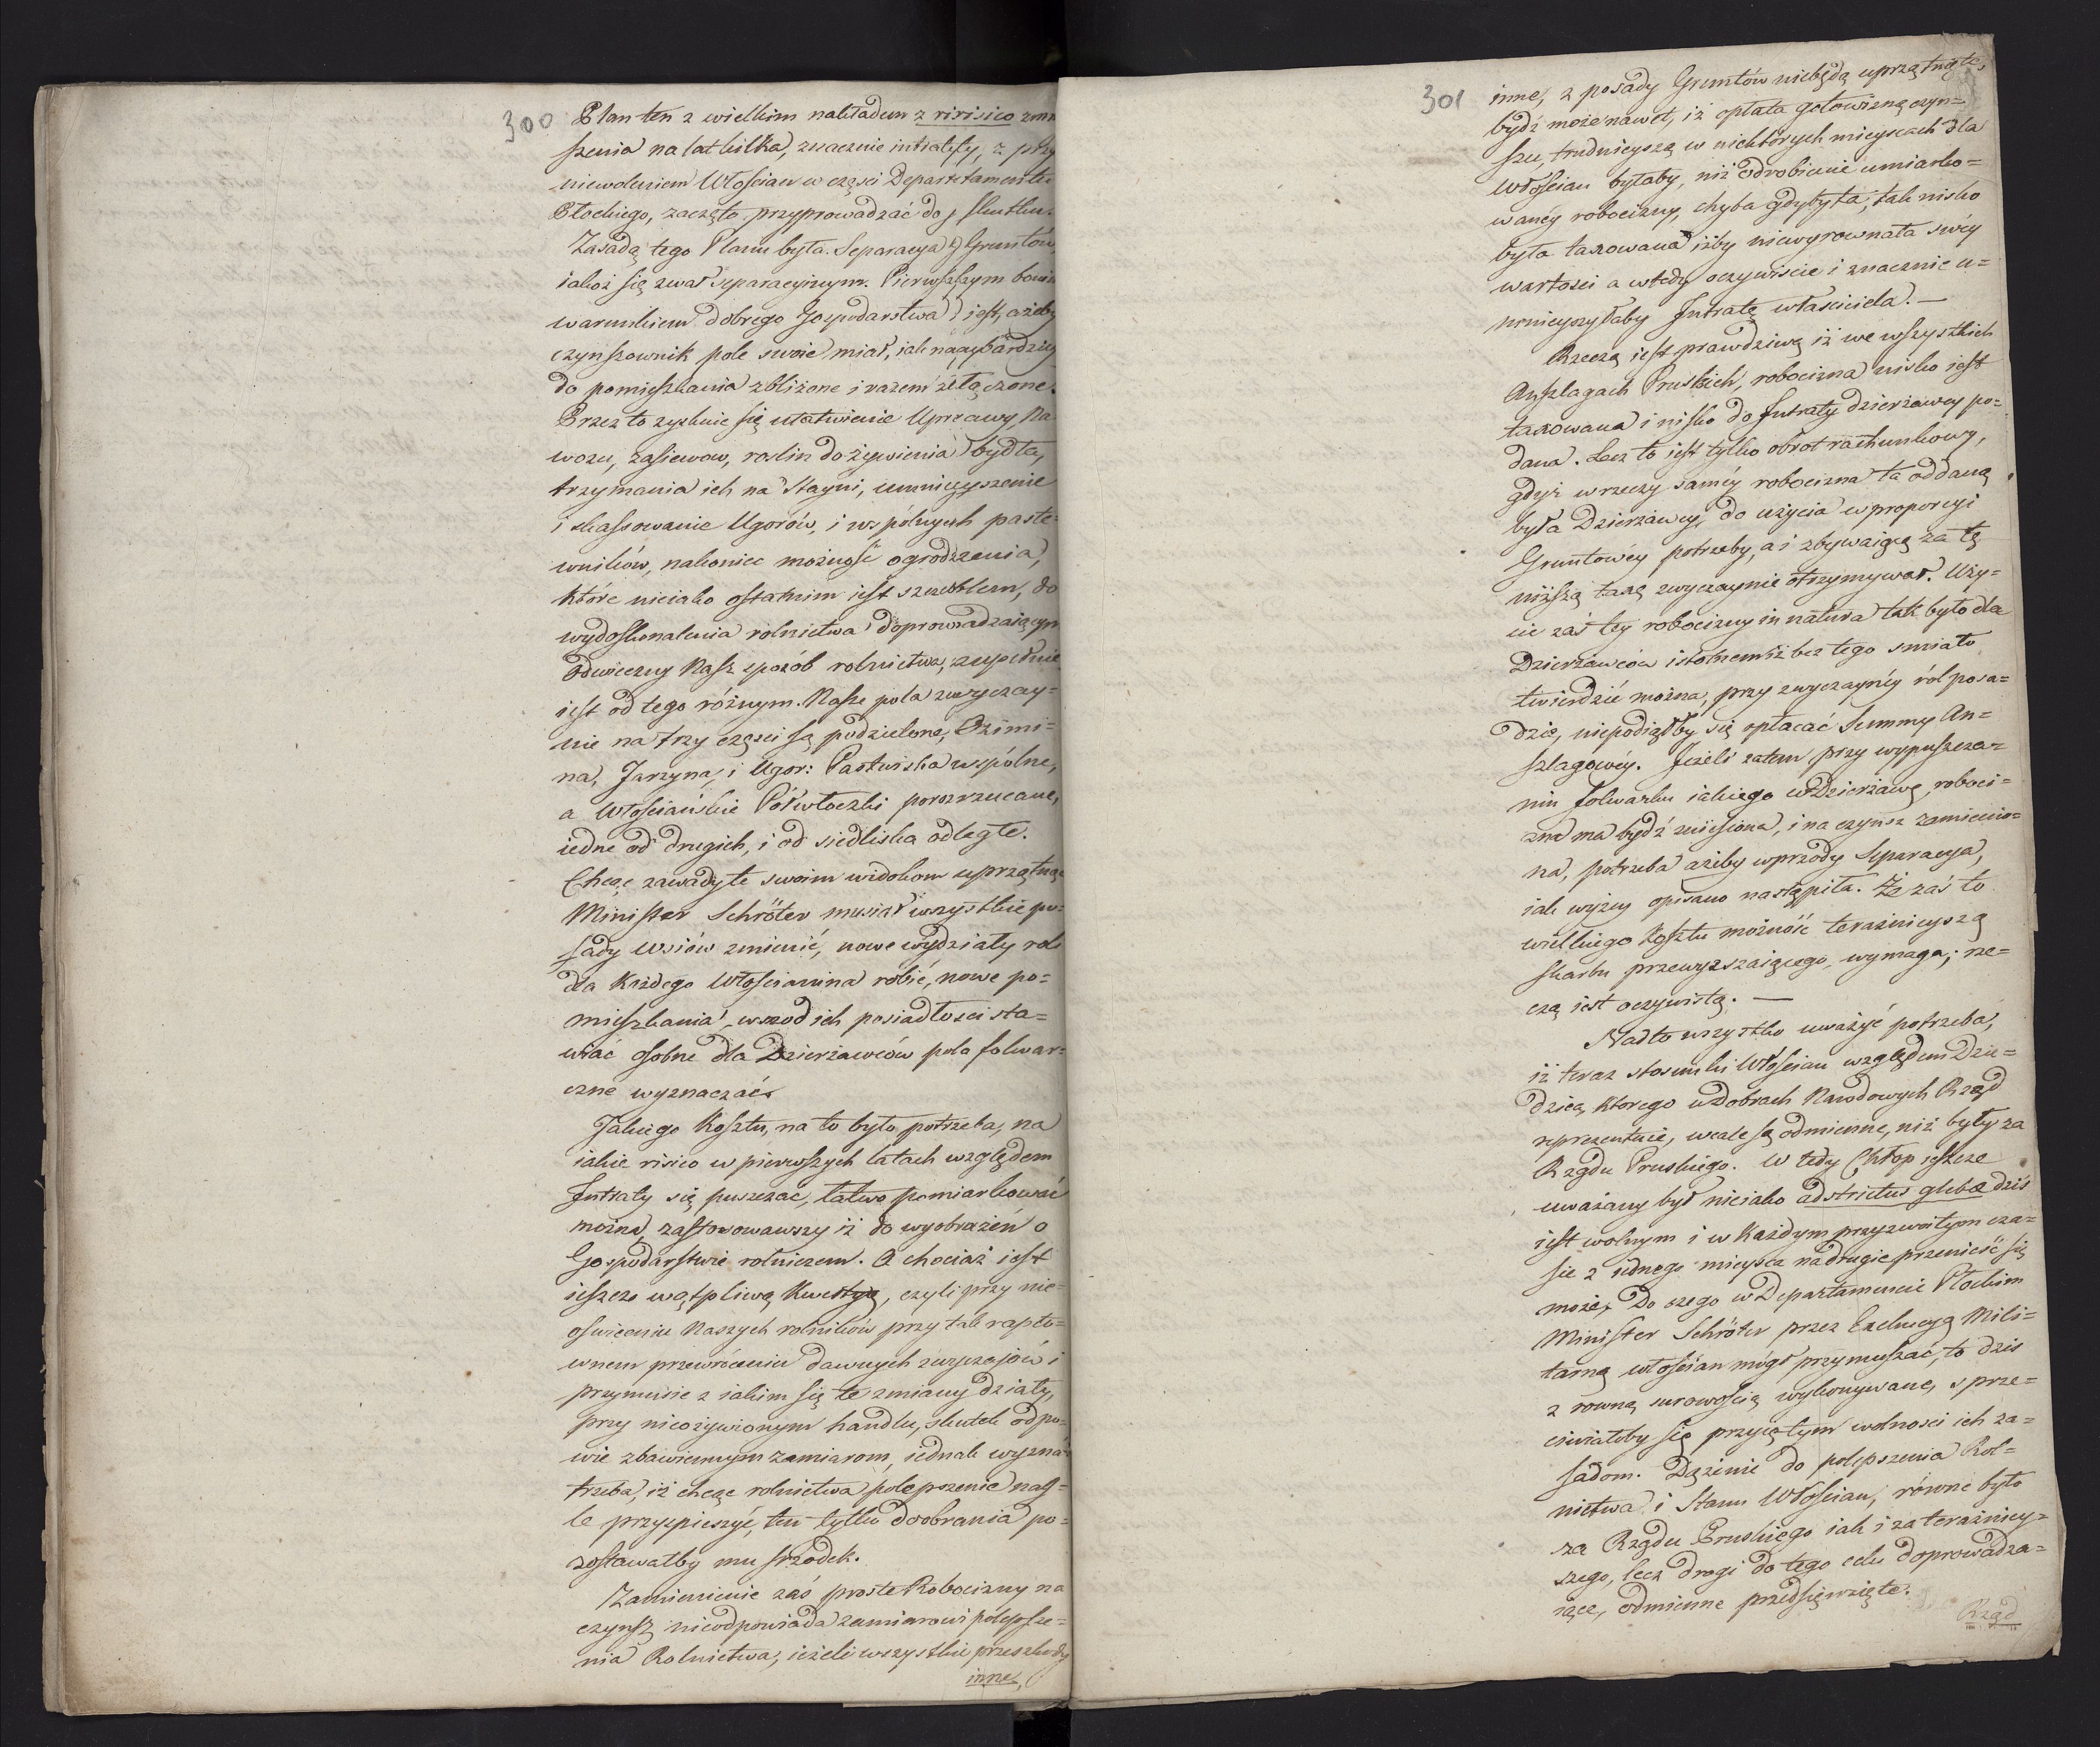 300
Plan ten z wielkim nakładem z ririsico zmn
szenia na lat kilka, znacznie intraty, z przy
niewoleniem Włoscian w częsci Departamentu
Płockiego, zaczęto przyprowadzać do skutku.
Zasadą tego Planu była Separacya Gruntów
iakoż się zwał separacyinym. Pierwszym bowie
warunkiem dobrego Gospodarstwa iest, ażeby
czynszownik pole swoie miał, iak naybardziey
do pomieszkania zbliżone i razem złączone.
Przez to zyskuie się ułatwienie Uprawy, Na
wozu, zasiewow, roslin do żywienia bydła,
trzymania ich na Stayni, umnieyszenie
i skassowanie Ugorów, i wspólnych paste=
wników, nakoniec możność ogrodzenia,
które nieiako ostatnim iest szczeblem, do
wydoskonalenia rolnictwa doprowadzaiącym
Odwieczny Nasz sposób rolnictwa, zupełnie
iest od tego różnym. Nasze pola zwyczay=
nie na trzy częsci są podzielone, Ozimi=
na, Jarzyna, i Ugor: Pastwiska wspólne,
a Włosciańskie Półwłoczki porozrzucane,
iedne od drugich, i od siedliska odległe.
Chcąc zawady te swoim widokom uprzątnąc
Minister Schröter musiał wszystkie po=
sady Wsiów zmienić, nowe wydziały roli
dla Każdego Włoscianina robić, nowe po=
mieszkania, wszod ich posiadłosci sta=
wiać osobne dla Dzierżawców pola folwar=
czne wyznaczać.
Jakiego Kosztu, na to było potrzeba, na
iakie risico w pierwszych latach względem
Intraty się puszczac, łatwo pomiarkować
można, zastosowawszy iż do wyobrażeń o
Gospodarstwie rolniczem. A chociaż iest
ieszcze wątpliwą Kwestyą, czyli przy nie=
oswieceniu Naszych rolników przy tak rapto=
wnem przewróceniu dawnych zwyczajów i
przymusie z iakim się te zmiany działy,
przy nieożywionym handlu, skutek odpo=
wie zbawiennym zamiarom, iednak wyznać
trzeba, iż chcąc rolnictwa polepszenie nag=
le przyspieszyć, ten tylko do obrania po=
zostawałby mu srzodek.
Zamienienie zaś proste Robocizny na
czynsz nieodpowiada zamiarowi polepsze=
nia Rolnictwa, ieżeli wszystkie przeszkody
inne,
301
inne, z posady Gruntów niebędą uprzątnięte,
bydź może nawet, iż opłata gotowizną czyn=
szu, trudnieyszą w niektórych mieyscach dla
Włościan byłaby, niż odrobienie umiarko=
wanéy robocizny, chyba gdyby ta, tak nisko
była taxowana iżby niewyrownała swéy
wartosci a wtedy oczywiscie i znacznie u=
mnieyszyłaby Intratę własciciela. —
Rzeczą iest prawdziwą iż we wszystkich
Anszlagach Pruskich, robocizna nisko iest
taxowana i nisko do Intraty dzierżawcy po=
dana. Lecz to iest tylko obrot rachunkowy,
gdyż w rzeczy saméy robocizna ta oddaną
była Dzierżawcy, do użycia w proporcyi
Gruntowéy potrzeby, a i zbywaiącą za tę
niższą taxę zwyczaynie otrzymywał. Uży=
cie zaś tey robocizny in natura tak było dla
Dzierżawców istotnem iż bez tego smiało
twierdzić można, przy zwyczaynéy ról posa=
dzie, niepodiąłby się opłacać Summy An=
szlagowéy. Jeżeli zatem przy wypuszcza=
niu folwarku iakiego w Dzierżawę, roboci=
zna ma bydź zniesiona, i na czynsz zamienio=
na, potrzeba ażeby wprzody Separacya,
iak wyżey opisano nastąpiła. Że zaś to
wielkiego Kosztu możność teraźnieyszą
skarbu przewyższaiącego, wymaga; rze=
czą iest oczywistą. —
Nadto wszystko uważyć potrzeba,
iż teraz stosunki Włościan względem Dzie=
dzica, ktorego w dobrach Narodowych Rząd
reprezentuie, wcale są odmienne, niż były za
Rządu Pruskiego. W tedy Chłop ieszcze
uważany był nieiako adstrictus glebæ dziś
iest wolnym i w Każdym przyzwoitym cza=
sie z iednego mieysca na drugie przenieść się
może, Do czego w Departamencie Płockim
Minister Schröter przez Exekucyą Mili=
tarną włościan mógł przymuszać, to dzis
z rowną surowością wykonywane, sprze=
ciwiałoby się przyiętym wolnosci ich za=
sadom. Dążenie do polepszenia Rol=
nictwa i Stanu Włoscian, równe było
za Rządu Pruskiego iak i za teraźniey=
szego, lecz drogi do tego celu doprowadza=
iące, odmienne przedsięwzięte.
Rząd